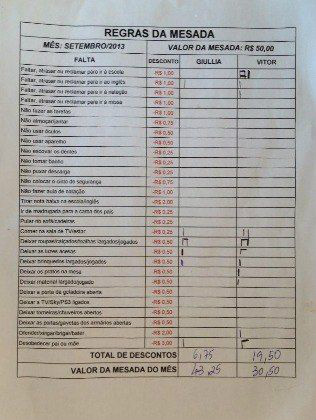 REGRAS DA MESADA
MÊS: SETEMBRO/2013 VALOR DA MESADA: R$ 50,00
FALTA DESCONTO GIULLIA VITOR
Faltar, atrasar ou reclamar para ir à escola -R$ 1,00
Faltar, atrasar ou reclamar para ir ao inglês -R$ 1,00
Faltar, atrasar ou reclamar para ir à natação -R$ 1,00
Faltar, atrasar ou reclamar para ir à missa -R$ 1,00
Não fazer as tarefas -R$ 1,00
Não almoçar/jantar -R$ 0,75
Não usar óculos -R$ 0,50
Não usar aparelho -R$ 0,50
Não escovar os dentes -R$ 0,25
Não tomar banho -R$ 0,25
Não puxar descarga -R$ 0,25
Não colocar o cinto de segurança -R$ 0,75
Não fazer aula de natação -R$ 1,00
Tirar nota baixa na escola/inglês -R$ 2,00
Ir de madrugada para a cama dos pais -R$ 0,25
Pular no sofá/cadeiras -R$ 0,25
Comer na sala de TV/estar -R$ 0,25
Deixar roupas/calçados/toalhas largados/jogados -R$ 0,50
Deixar as luzes acesas -R$ 0,50
Deixar brinquedos largados/jogados -R$ 0,50
Deixar os pratos na mesa -R$ 0,25
Deixar material largado/jogado -R$ 0,50
Deixar a porta de geladeira aberta -R$ 0,50
Deixar a TV/Sky/PS3 ligados -R$ 0,50
Deixar torneiras/chuveiros abertos -R$ 0,50
Deixar as portas/gavetas dos armários abertas -R$ 0,50
Ofender/xingar/brigar/bater -R$ 2,00
Desobedecer pai ou mãe -R$ 3,00
TOTAL DE DESCONTOS 6,75 19,50
VALOR DA MESADA DO MÊS 43,25 30,50